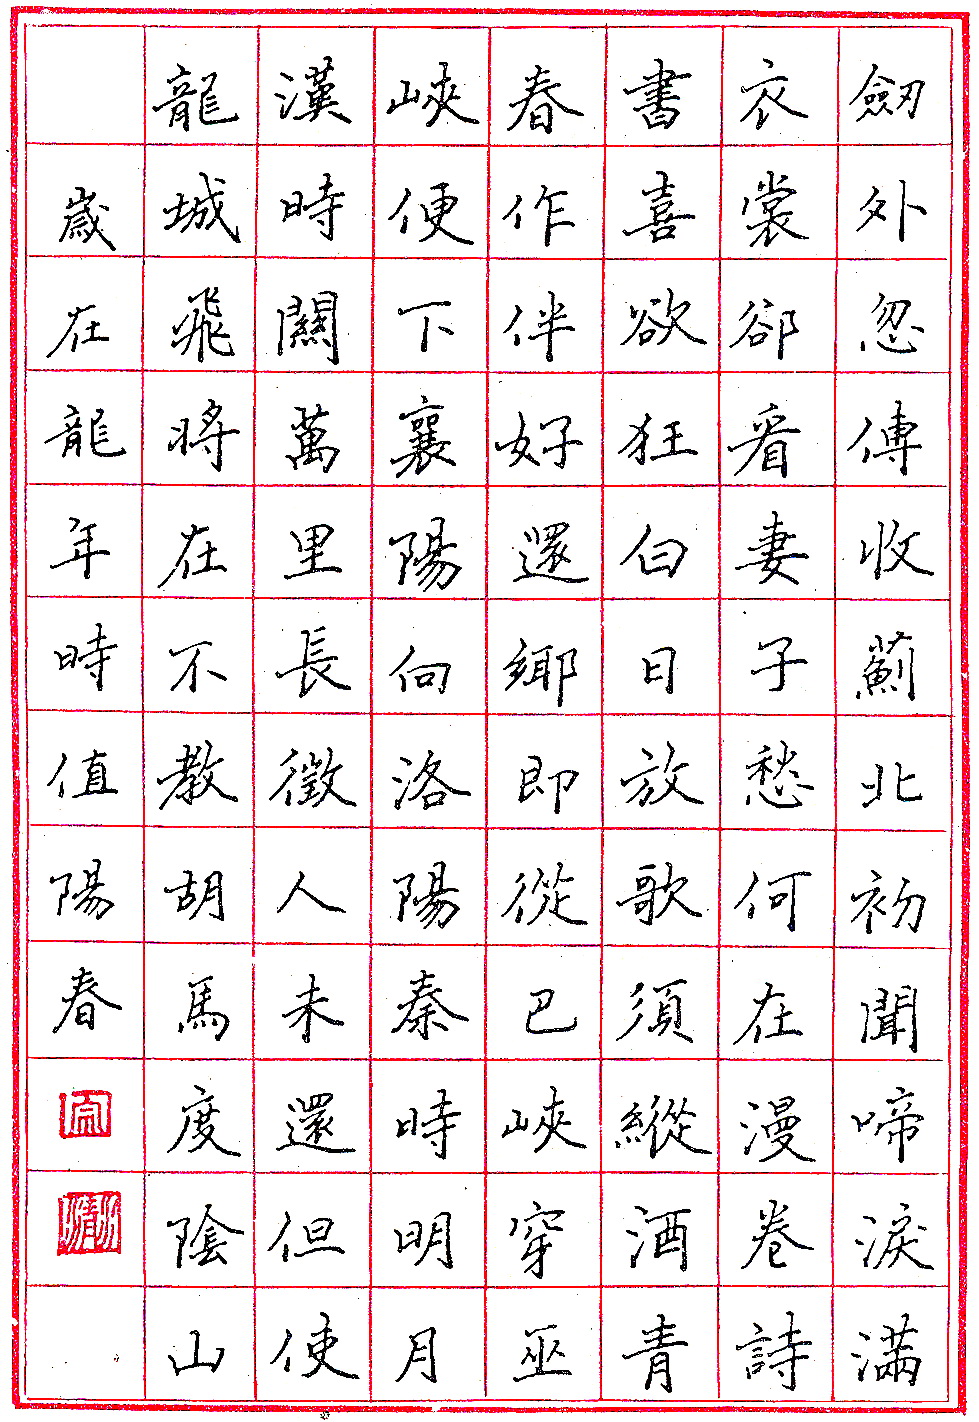 劒外忽傳收薊北初聞啼淚滿
衣裳卻看妻子愁何在漫卷詩
書喜欲狂白日放歌須縱酒青
春作伴好還鄉即從巴峽穿巫
峽便下襄陽向洛陽秦時明月
漢時關萬里長徵人未還但使
龍城飛將在不教胡馬度陰山
歲在龍年時值陽春